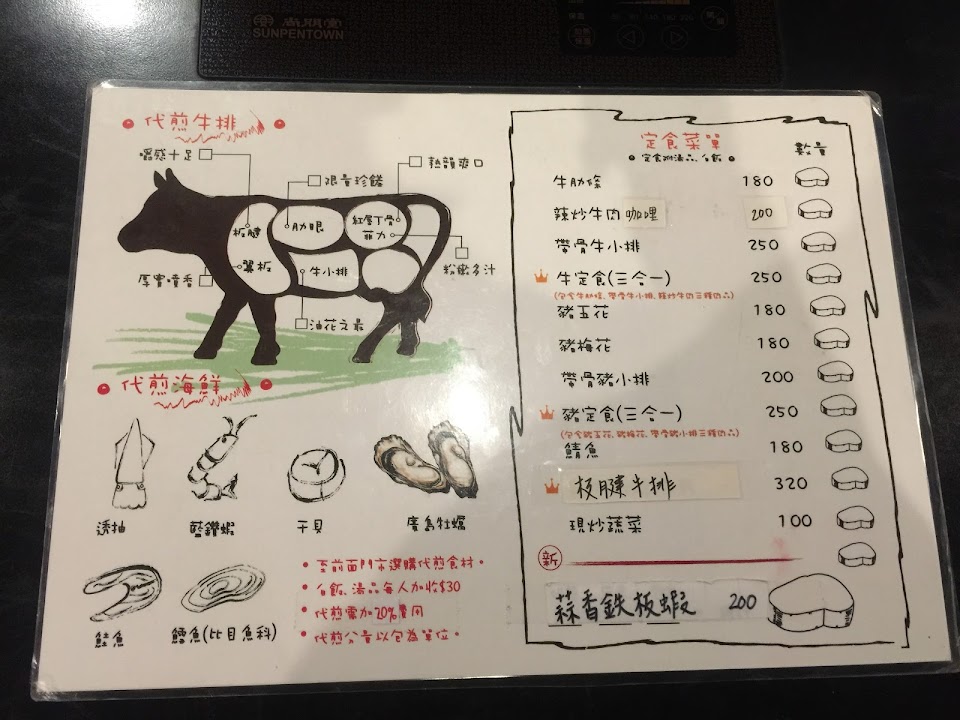 尚朋堂
SUNPENTOWN
代煎牛排
嚼感十足
限量珍饈
熱韻爽口
板腱
肋眼
紅屋丁骨
菲力
翼板
牛小排
厚實噴香
粉嫩多汁
油花之最
代煎海鮮
透抽
藍鑽蝦
干貝
廣島牡蠣
鮭魚
鱈魚(比目魚科)
• 至前面門市選購代煎食材。
• 白飯、湯品每人加收$30
• 代煎需加20%費用
• 代煎分量以包為單位。
定食菜單
• 定食附湯品、白飯 •
數量
牛肋條 180
辣炒牛肉咖哩 200
帶骨牛小排 250
牛定食(三合一) 250
(包含牛肋條、帶骨牛小排、辣炒牛肉三種肉品)
豬五花 180
豬梅花 180
帶骨豬小排 200
豬定食(三合一) 250
(包含豬五花、豬梅花、帶骨豬小排三種肉品)
鯖魚 180
板腱牛排 320
現炒蔬菜 100
新
蒜香鉄板蝦 200